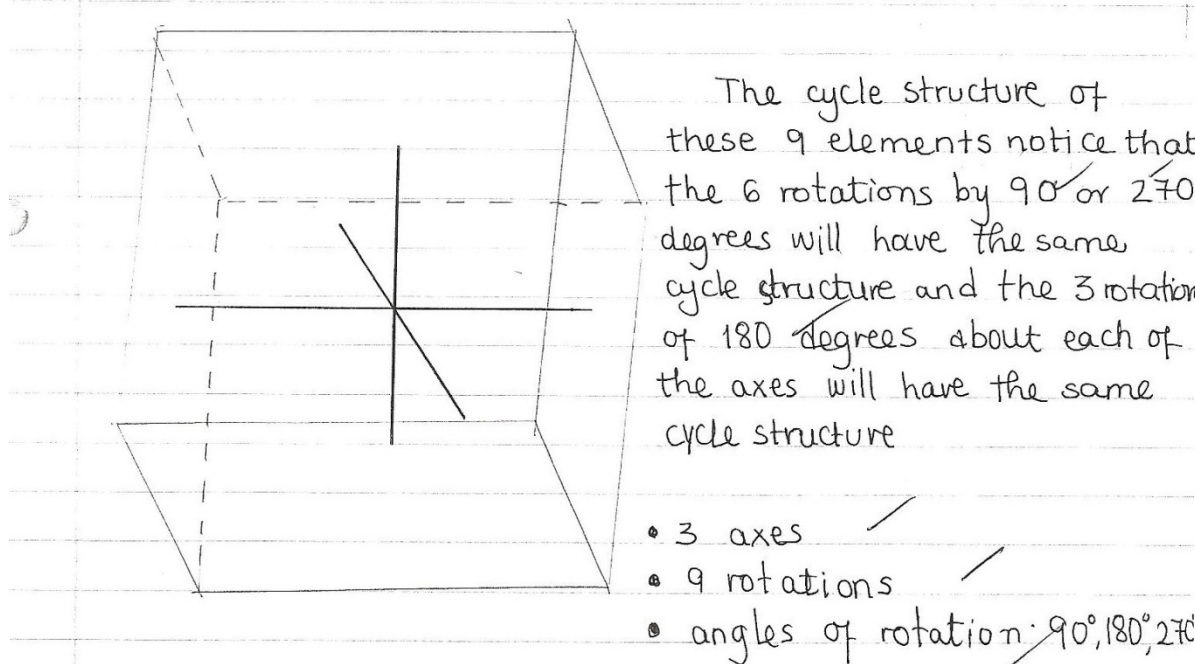 The cycle structure of
these 9 elements notice that
the 6 rotations by 90 or 270
degrees will have the same
cycle structure and the 3 rotation
of 180 degrees about each of
the axes will have the same
cycle structure
• 3 axes
• 9 rotations
• angles of rotation: 90°, 180°, 270°